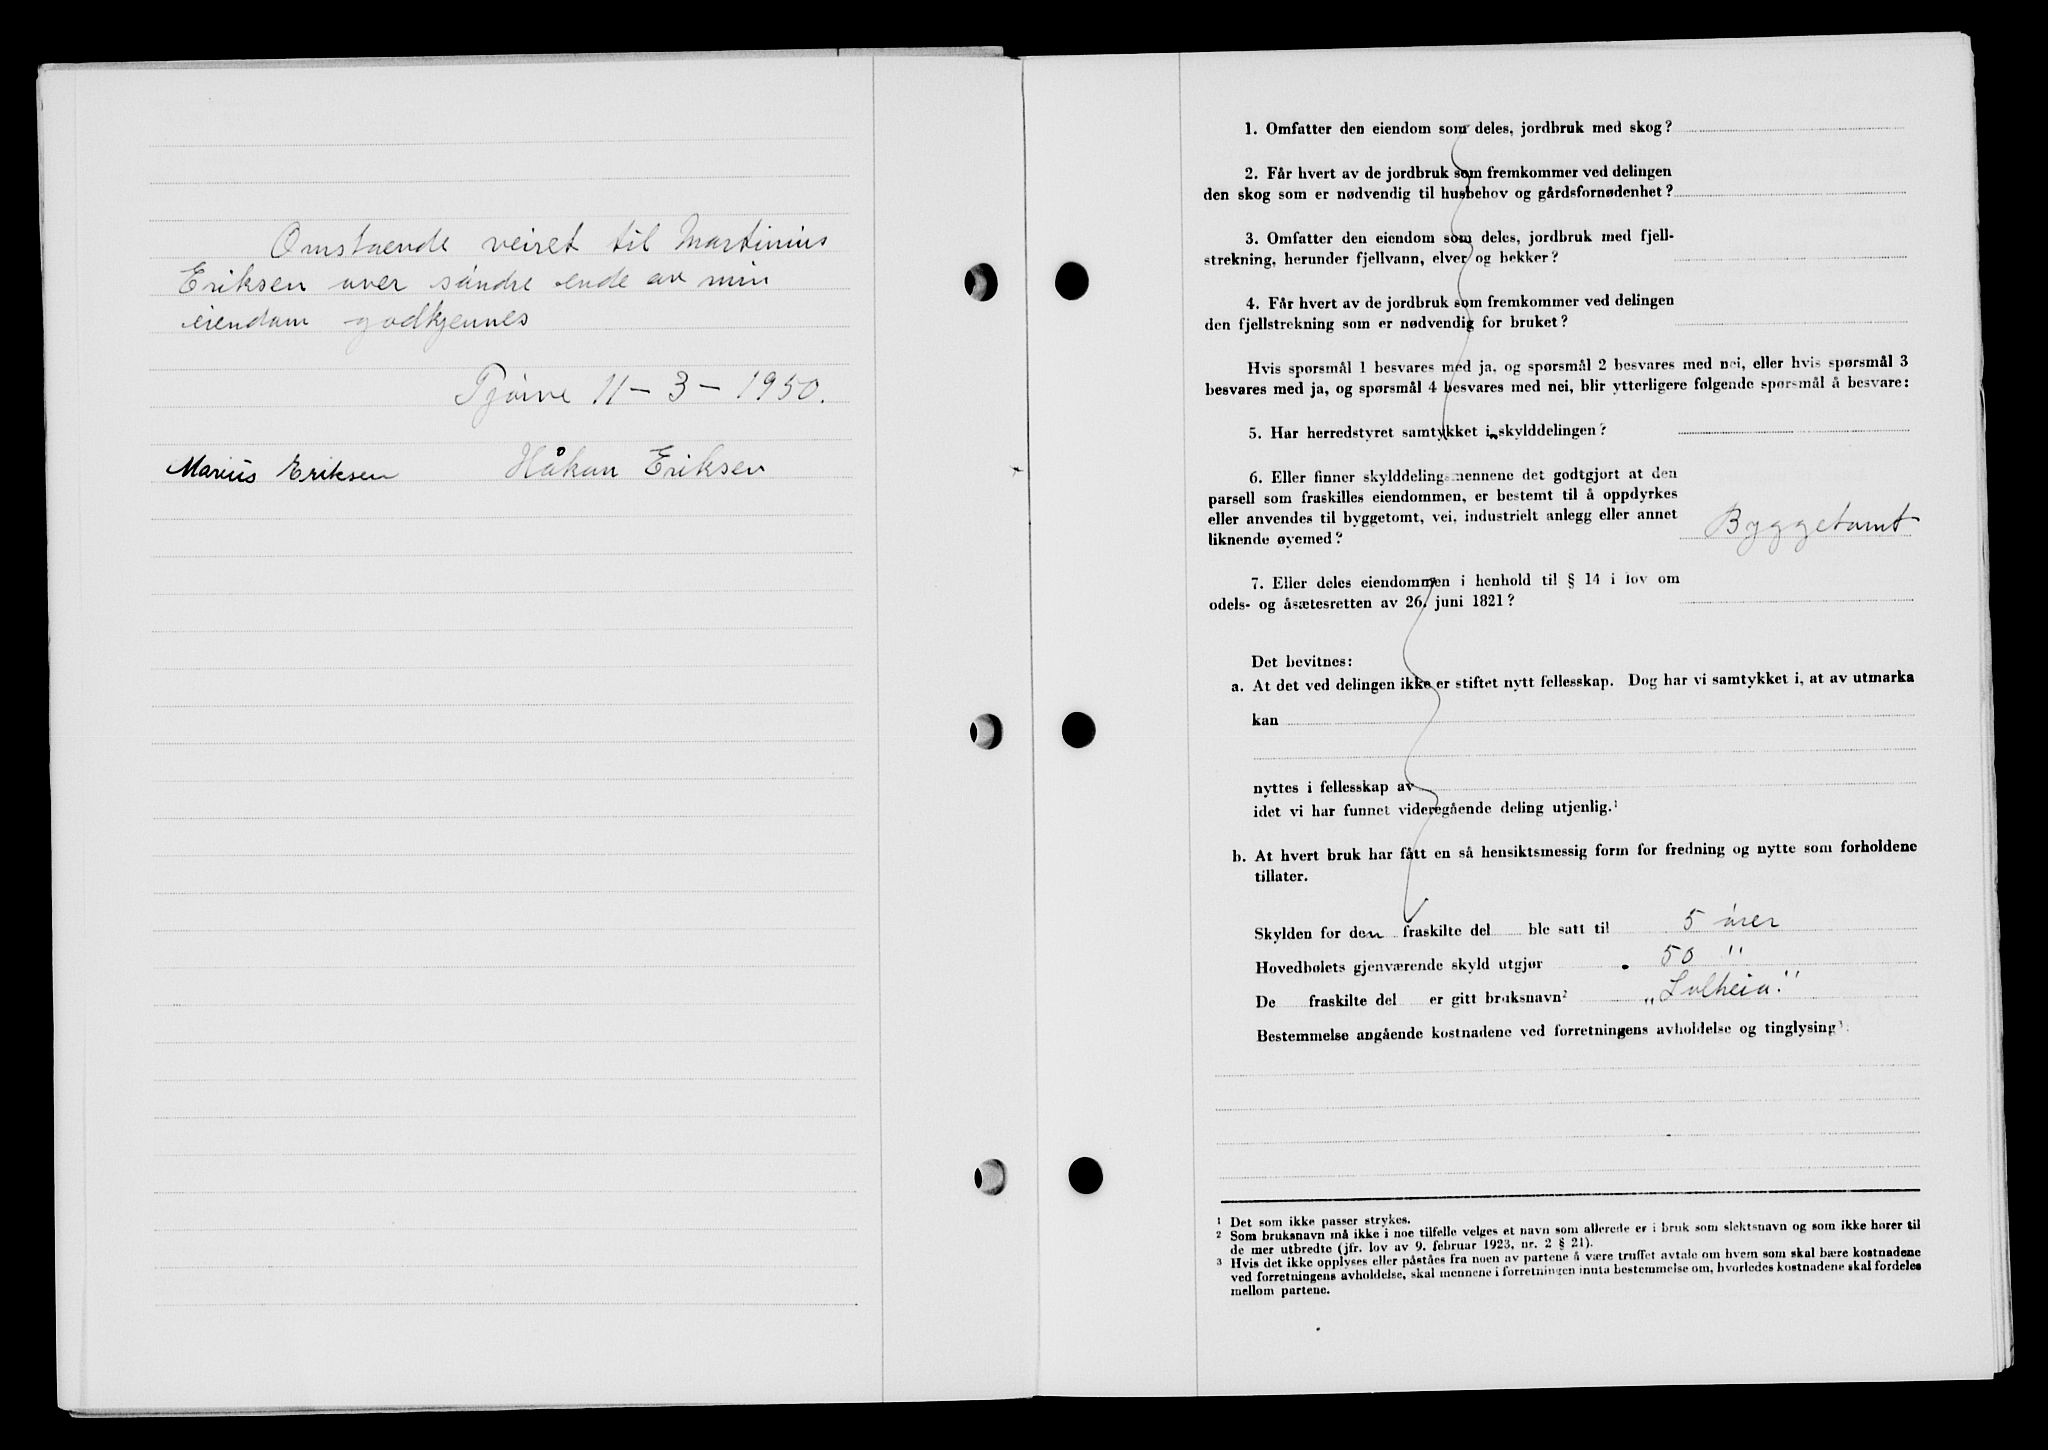 Omstaende veiret til Martinius
Eriksen over söndre ende av min
eiendom godkjennes
Tjörve 11 – 3 – 1950.
Marius Eriksen Håkon Eriksen
1. Omfatter den eiendom som deles, jordbruk med skog?
2. Får hvert av de jordbruk som fremkommer ved delingen
den skog som er nødvendig til husbehov og gårdsfornødenhet?
3. Omfatter den eiendom som deles, jordbruk med fjell-
strekning, herunder fjellvann, elver og bekker?
4. Får hvert av de jordbruk som fremkommer ved delingen
den fjellstrekning som er nødvendig for bruket?
Hvis spørsmål 1 besvares med ja, og spørsmål 2 besvares med nei, eller hvis spørsmål 3
besvares med ja, og spørsmål 4 besvares med nei, blir ytterligere følgende spørsmål å besvare:
5. Har herredstyret samtykket i skylddelingen?
6. Eller finner skylddelingsmennene det godtgjort at den
parsell som fraskilles eiendommen, er bestemt til å oppdyrkes
eller anvendes til byggetomt, vei, industrielt anlegg eller annet
liknende øyemed? Byggetomt
7. Eller deles eiendommen i henhold til § 14 i lov om
odels- og åsætesretten av 26. juni 1821?
Det bevitnes:
a. At det ved delingen ikke er stiftet nytt fellesskap. Dog har vi samtykket i, at av utmarka
kan
nyttes i fellesskap av
idet vi har funnet videregående deling utjenlig.¹
b. At hvert bruk har fått en så hensiktsmessig form for fredning og nytte som forholdene
tillater.
Skylden for den fraskilte del ble satt til 5 örer
Hovedbølets gjenværende skyld utgjør 50 "
De fraskilte del er gitt bruksnavn² „Solheia."
Bestemmelse angående kostnadene ved forretningens avholdelse og tinglysing³:
¹ Det som ikke passer strykes.
² Som bruksnavn må ikke i noe tilfelle velges et navn som allerede er i bruk som slektsnavn og som ikke hører til
de mer utbredte (jfr. lov av 9. februar 1923, nr. 2 § 21).
³ Hvis det ikke opplyses eller påstås fra noen av partene å være truffet avtale om hvem som skal bære kostnadene
ved forretningens avholdelse, skal mennene i forretningen innta bestemmelse om, hvorledes kostnadene skal fordeles
mellom partene.